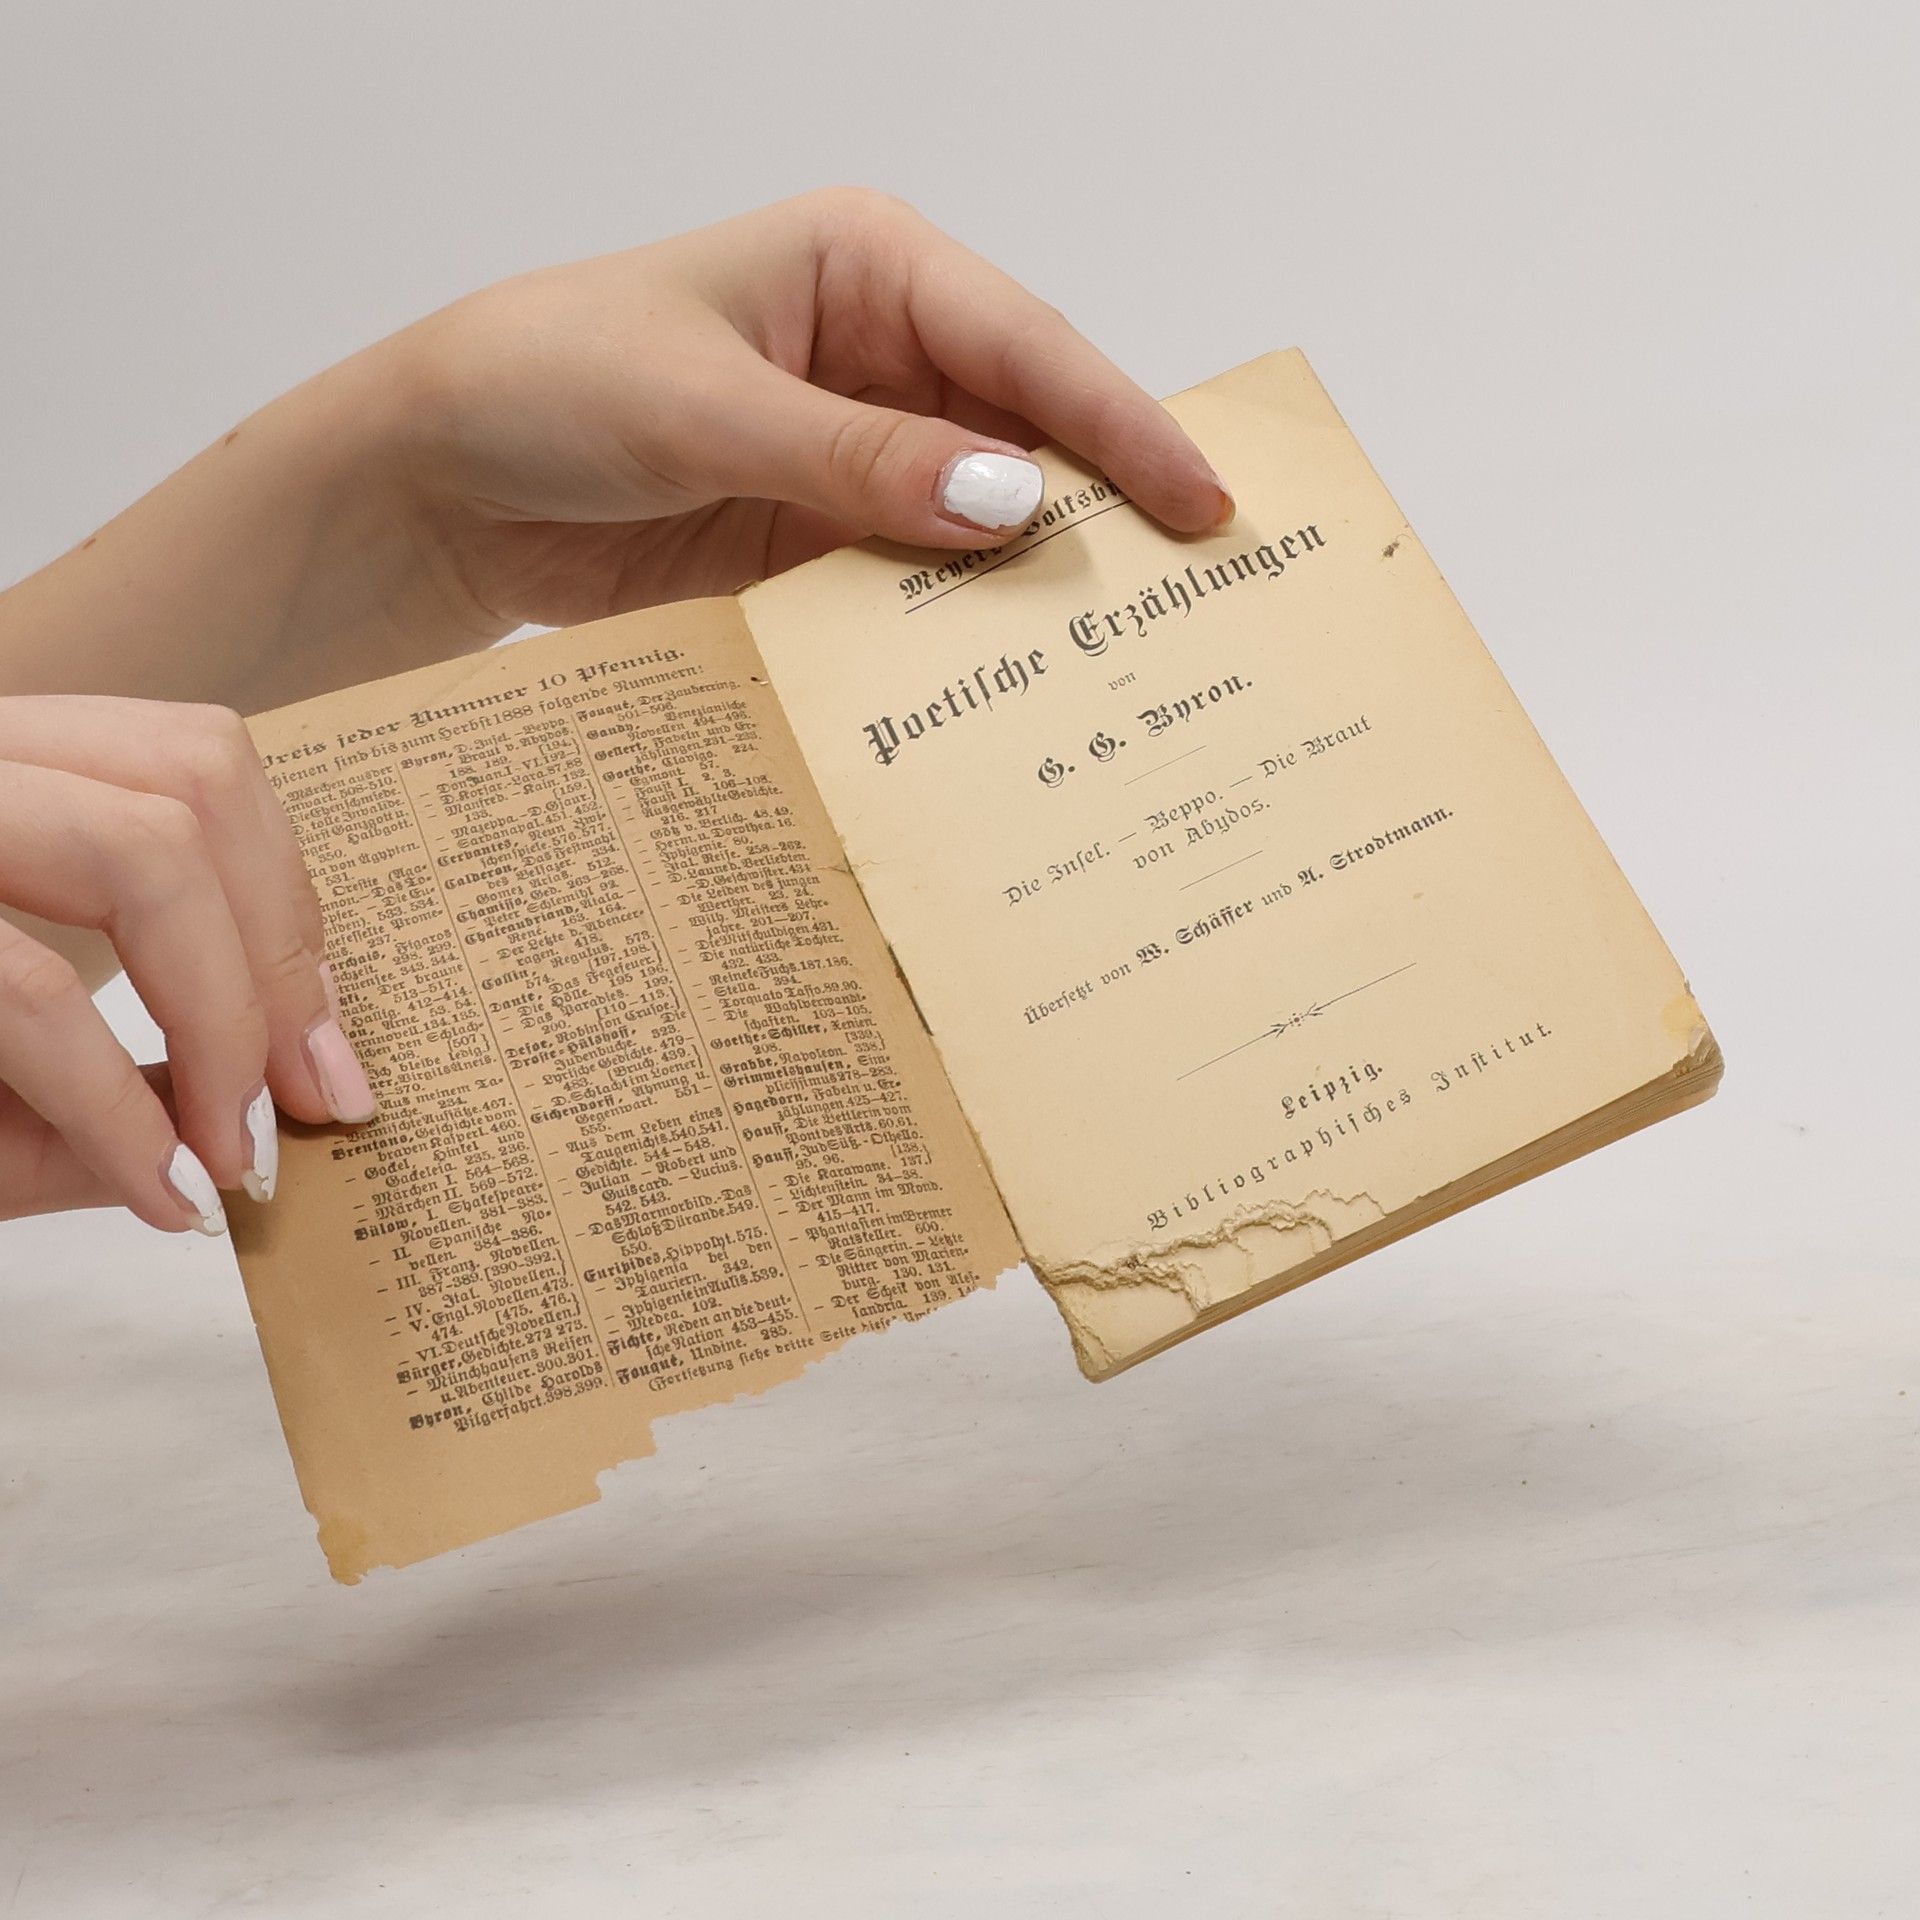 Preis jeder Nummer 10 Pfennig.
chienen sind bis zum Herbst 1888 folgende Nummern:
Märchen aus der
nwart. 508-510.
Die Ehenschmiede.
D. tolle Invalide.
Fürst Ganzgott u.
nger Halbgott.
350.
lla von Ägypten.
531.
Orestie (Aga-
nnon.-Das To-
opfer. - Die Eu-
niden). 533. 534.
gefesselte Prome-
eus. 237.
archais, Figaros
ochzeit. 298. 299.
truensee. 343. 344.
Der braune
nabe. 513-517.
Hallig. 412-414.
on, Arne. 53. 54.
ernnovell. 134. 135.
ischen den Schlach-
n. 408. [507]
Ich bleibe ledig.}
ner, Virgils Äneis.
8-370.
Aus meinem Ta-
gebuche. 234.
- Vermischte Aufsätze. 467.
Brentano, Geschichte vom
braven Kasperl. 460.
- Gockel, Hinkel und
Gackeleia. 235. 236.
- Märchen I. 564-568.
- Märchen II. 569-572.
Bülow, I. Shakespeare-
Novellen. 381-383.
- II. Spanische No-
vellen. 384-386.
- III. Franz. Novellen.
387-389. [390-392.}
- IV. Ital. Novellen.}
- V. Engl. Novellen. 473.
474. [475. 476.}
- VI. Deutsche Novellen.}
Bürger, Gedichte. 272 273.
- Münchhausens Reisen
u. Abenteuer. 300. 301.
Byron, Childe Harolds
Pilgerfahrt. 398. 399.
Byron, D. Insel. - Beppo.
- Braut v. Abydos.
188. 189. [194.}
- Don Juan. I - VI. 192-}
- D. Korsar. - Lara. 87. 88
- Manfred. - Kain. 132.
133. [159.}
- Mazeppa. - D. Gjaur.}
- Sardanapal. 451. 452.
Cervantes, Neun Zwi-
schenspiele. 576. 577.
Calderon, Das Festmahl
des Belsazer. 334.
- Gomez Arias. 512.
Chamisso, Ged. 263-268.
- Peter Schlemihl 92.
Chateaubriand, Atala. -
René. 163. 164.
- Der Letzte d. Abencer-
ragen. 418.
Collin, Regulus. 573.
574. [197. 198.}
Dante, Das Fegefeuer.}
- Die Hölle. 195 196.
- Das Paradies. 199.
200. [110-113.}
Defoe, Robinson Crusoe.}
Droste-Hülshoff, Die
Judenbuche. 323.
- Lyrische Gedichte. 479-
483. [Bruch. 439.}
- D. Schlacht im Loener}
Eichendorff, Ahnung u.
Gegenwart. 551-
555.
- Aus dem Leben eines
Taugenichts. 540. 541.
- Gedichte. 544-548.
- Julian - Robert und
Guiscard. - Lucius.
542. 543.
- Das Marmorbild. - Das
Schloß Dürande. 549.
550.
Euripides, Hippolyt. 575.
- Iphigenia bei den
Tauriern. 342.
- Iphigenie in Aulis. 539.
- Medea. 102.
Fichte, Reden an die deut-
sche Nation 453-455.
Fouqué, Undine. 285.
Fouqué, Der Zauberring.
501-506.
Gaudy, Venezianische
Novellen 494-496.
Gellert, Fabeln und Er-
zählungen. 231-233.
Goethe, Clavigo. 224.
- Egmont. 57.
- Faust I. 2. 3.
- Faust II. 106-108.
- Ausgewählte Gedichte.
216. 217
- Götz v. Berlich. 48. 49.
- Herm. u. Dorothea. 16.
- Iphigenie. 80.
- Ital. Reise. 258-262.
- D. Laune d. Verliebten.
- D. Geschwister. 434
- Die Leiden des jungen
Werther. 23. 24.
- Wilh. Meisters Lehr-
jahre. 201-207.
- Die Mitschuldigen 431.
- Die natürliche Tochter.
432. 433.
- Reineke Fuchs. 187. 186.
- Stella. 394.
- Torquato Tasso. 89. 90.
- Die Wahlverwandt-
schaften. 103-105.
Goethe-Schiller, Xenien.
208. [339.}
Grabbe, Napoleon. 338.}
Grimmelshausen, Sim-
plicissimus 278-283.
Hagedorn, Fabeln u. Er-
zählungen. 425-427.
Hauff, Die Bettlerin vom
Pont des Arts. 60. 61.
Hauff, Jud Süß. - Othello.
95. 96. [138.}
- Die Karawane. 137.}
- Lichtenstein. 34-38.
- Der Mann im Mond.
415-417.
- Phantasien im Bremer
Ratskeller. 600.
- Die Sängerin. - Letzte
Ritter von Marien-
burg. 130. 131.
- Der Scheik von Ales-
sandria. 139.
(Fortsetzung siehe dritte Seite dieses
Meyers Volksbü
Poetische Erzählungen
von
G. G. Byron.
Die Insel. — Beppo. — Die Braut
von Abydos.
Übersetzt von W. Schäffer und A. Strodtmann.
Leipzig.
Bibliographisches Institut.